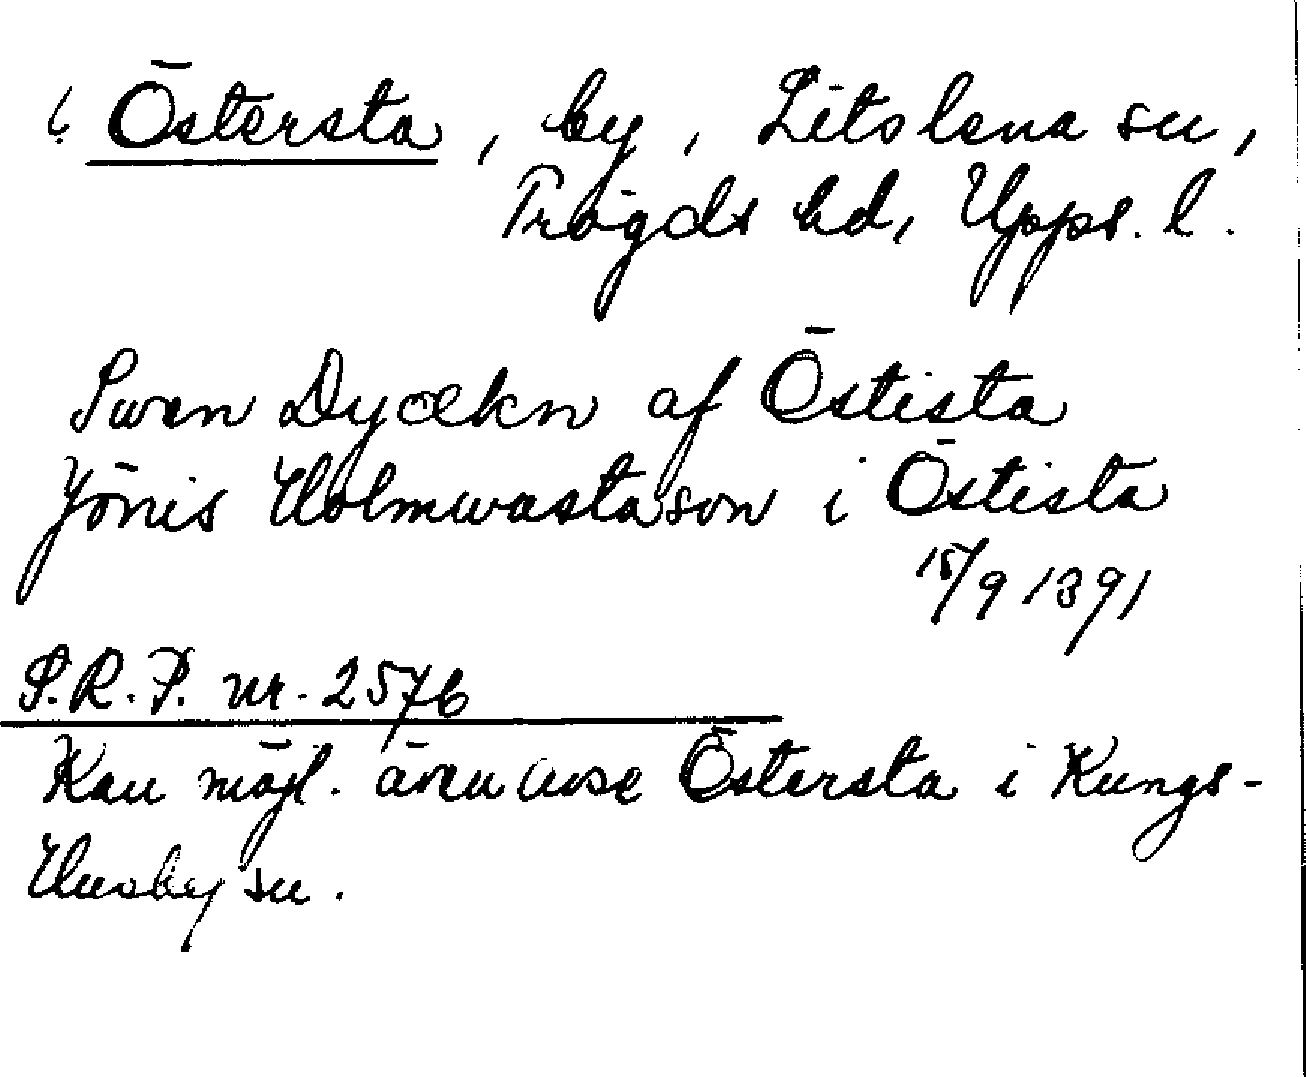 ¿ Östersta, by, Litslena sn,
Trögds hd, Upps. l.
Swen Dyækn af Östista
Jönis Holmwastason i Östista
15/9 1391
S.R.P. nr. 2576
Kan möjl. även avse Östersta i Kungs-
Husby sn.